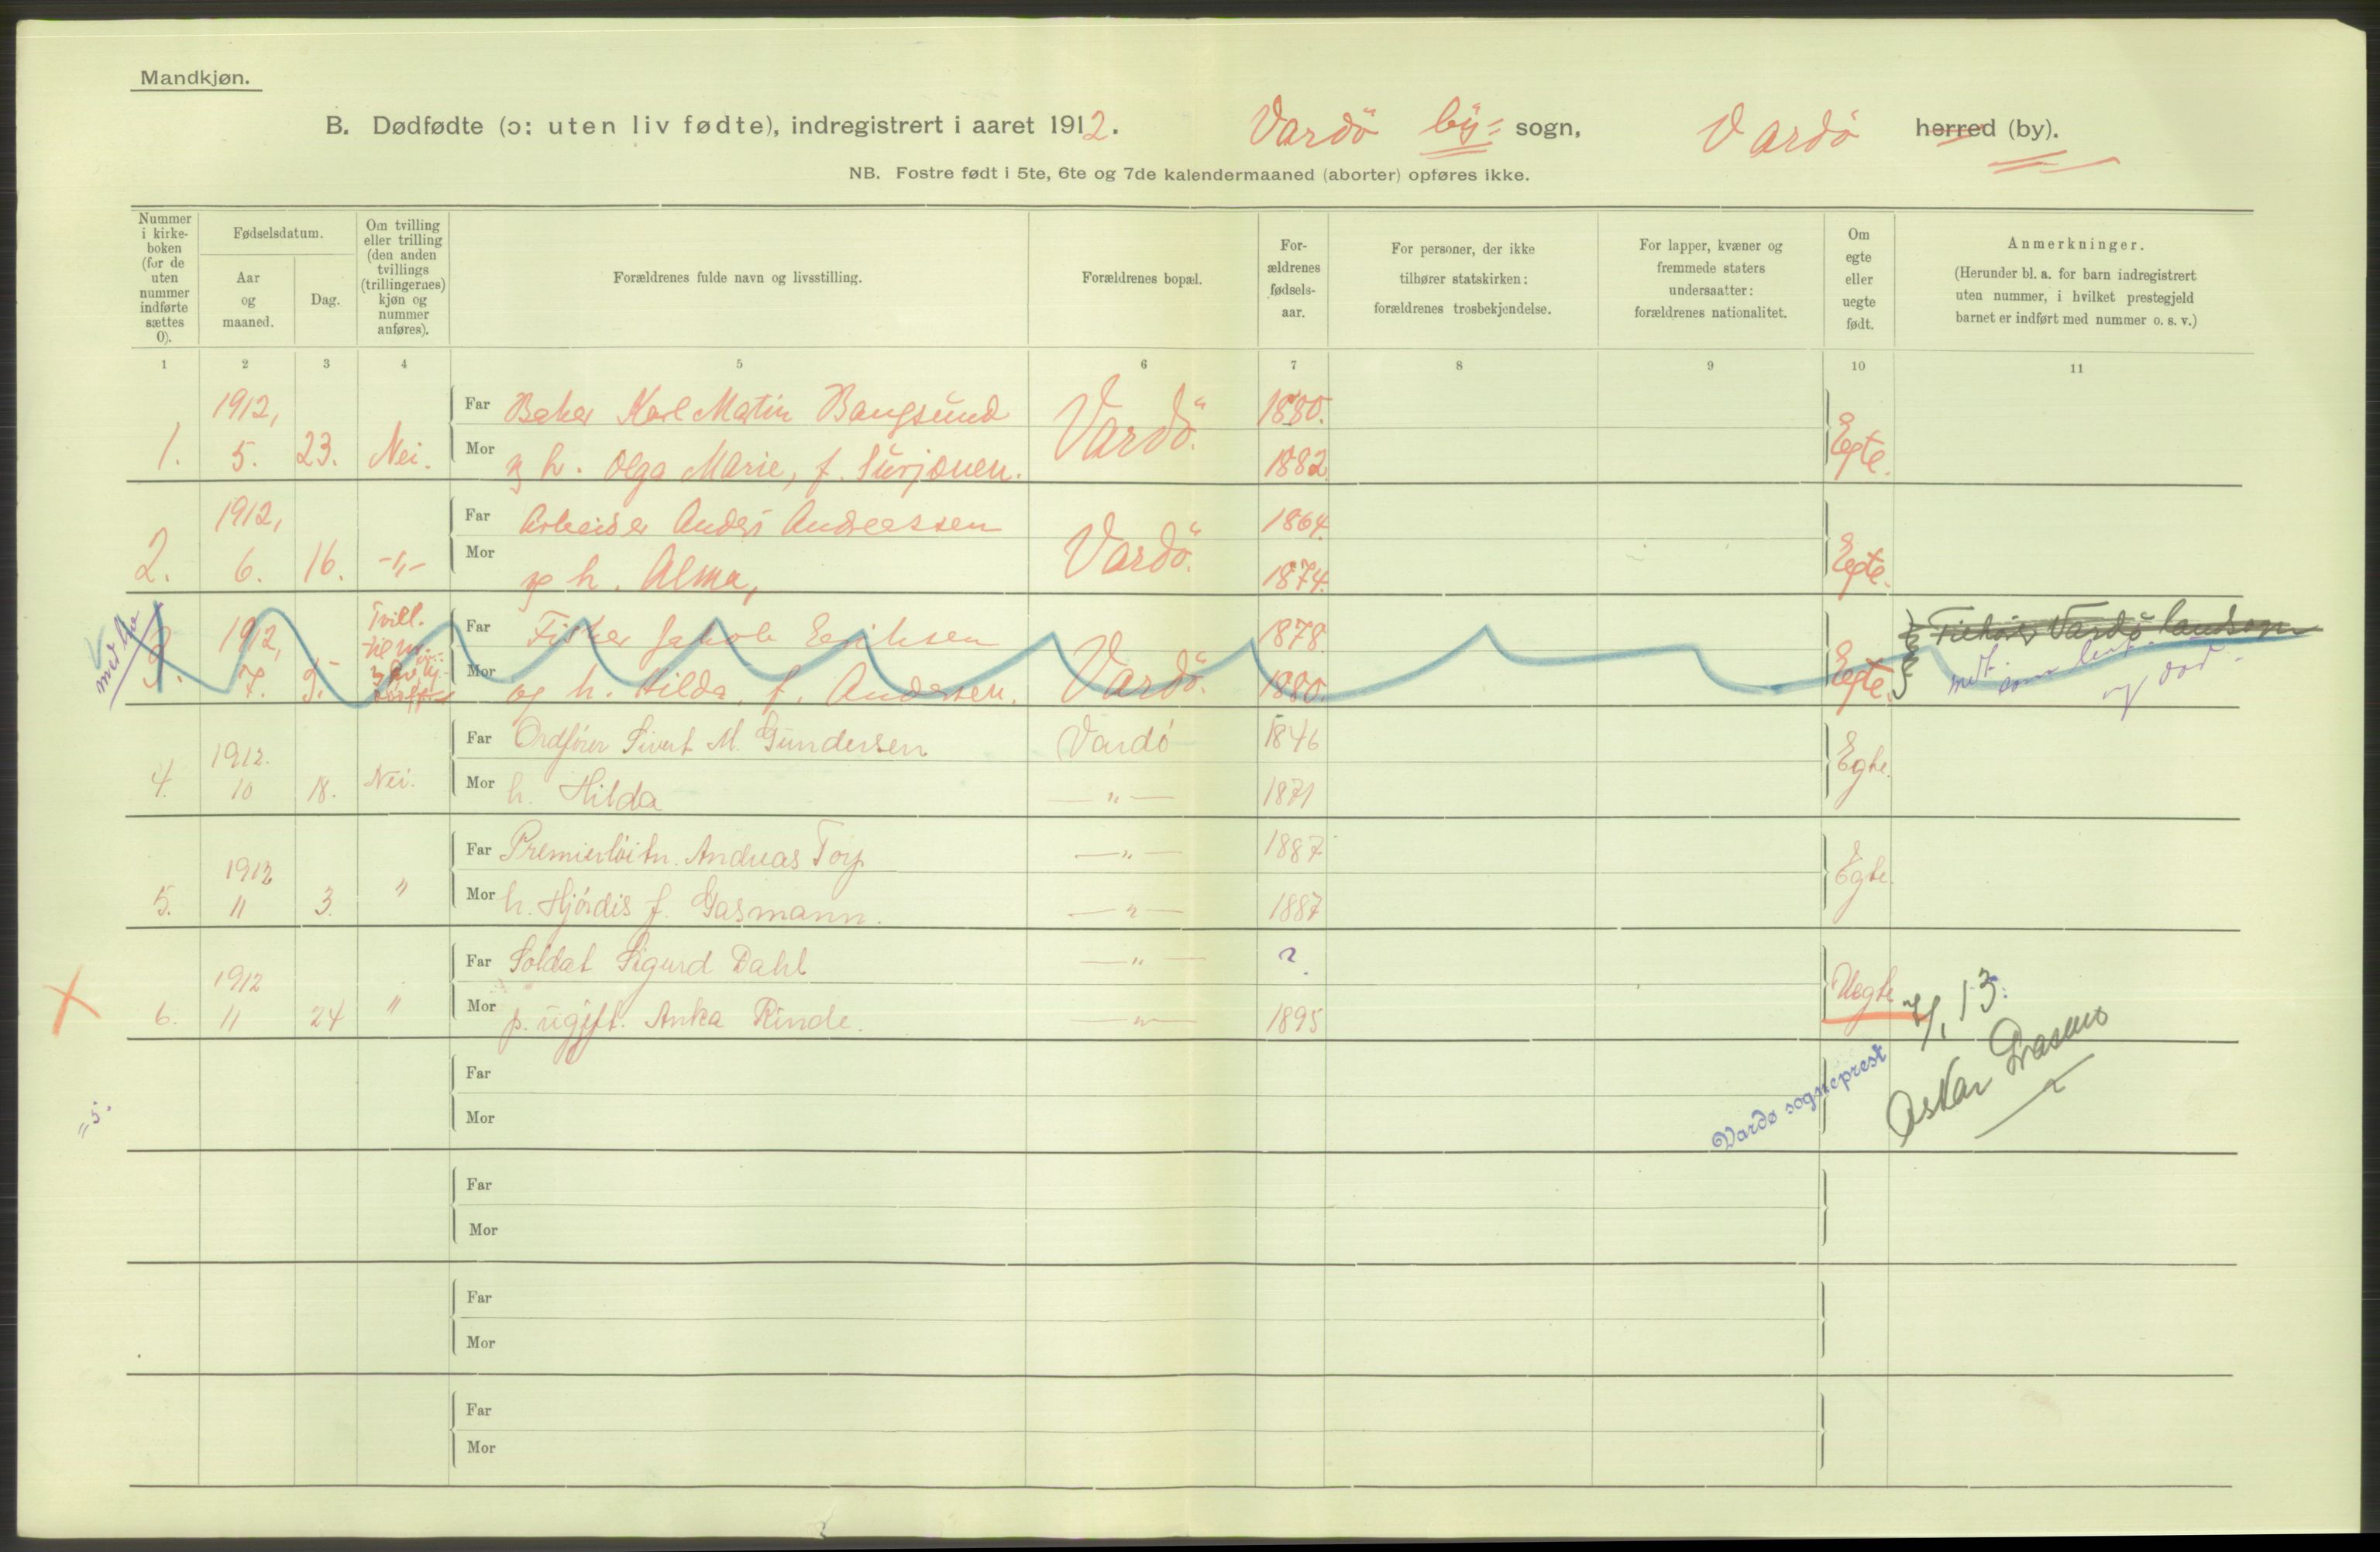 Mandkjøn.
B. Dødfødte (ɔ: uten liv fødte), indregistrert i aaret 1912. Vardö by= sogn, Vardö herred (by).
NB. Fostre født i 5te, 6te og 7de kalendermaaned (aborter) opføres ikke.
Nummer i kirke-boken (for de uten nummer indførte sættes 0).
Fødselsdatum.
Aar og maaned.
Dag.
Om tvilling eller trilling (den anden tvillings (trillingernes) kjøn og nummer anføres).
Forældrenes fulde navn og livsstilling.
Forældrenes bopæl.
For-ældrenes fødsels-aar.
For personer, der ikke tilhører statskirken: forældrenes trosbekjendelse.
For lapper, kvæner og fremmede staters undersaatter: forældrenes nationalitet.
Om egte eller uegte født.
Anmerkninger.
(Herunder bl. a. for barn indregistrert uten nummer, i hvilket prestegjeld barnet er indført med nummer o. s. v.)
1 2 3 4 5 6 7 8 9 10 11
1. 1912, 5. 23. Nei. Far Baker Karl Martin Bangsund Vardö. 1880. Egte.
Mor og h. Olga Marie, f. 1882
2. 1912, 6. 16. -"- Far Arbeider Anders Andreassen Vardö. 1864. Egte.
Mor og h. Alma, 1874.
3. 1912, 7. Tvill. Far Fisker Jakob Eriksen Vardö. 1878. Egte. Tilhører Vardö landsogn
Mor og h. Hilda, f. Andersen. 1880. og död.
4. 1912. 10 18. Nei. Far Ordfører Sivert M. Gundersen Vardö 1846 Egte.
Mor h. Hilda —"— 1871
5. 1912 11 3. " Far Premierløitn. Andreas Torp —"— 1887 Egte.
Mor h. Hjördis f. Gasmann. —"— 1887
6. 1912 11 24 " Far Soldat Sigurd Dahl —"— ? Uegte
Mor p. ugift. Anka Rinde. —"— 1895
Far
Mor
Far
Mor
Far
Mor
Far
Mor
Vardø sogneprest
Oskar